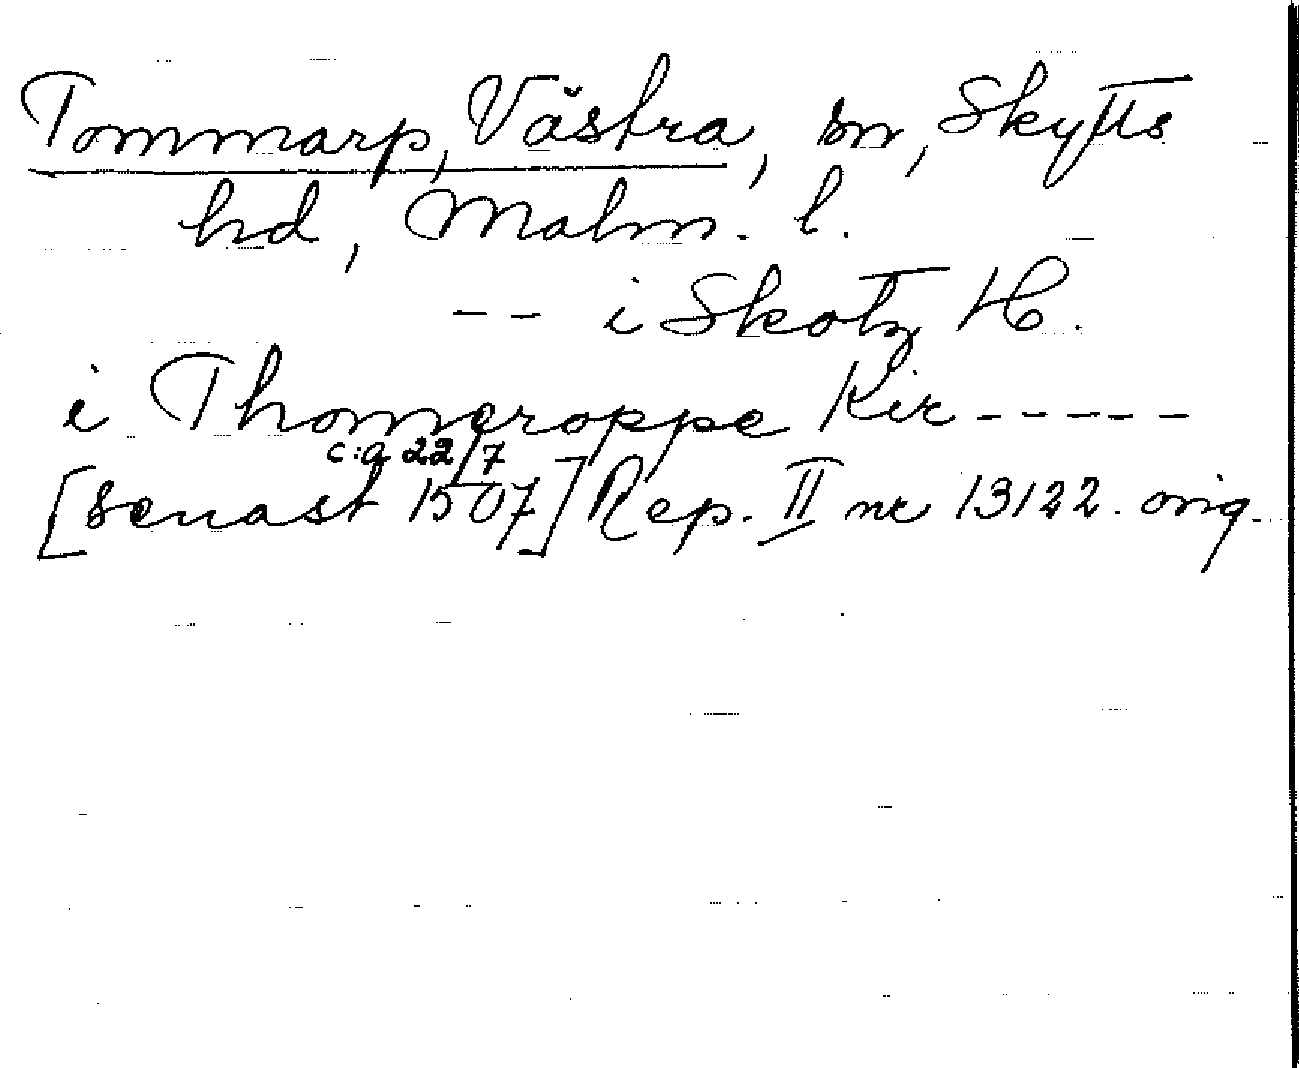 Tommarp, Västra, sn, Skytts
hd, Malm. l.
-- i Skotz H.
i Thomeroppe Kir-----
c:a 22/7
[senast 1507] Rep. II nr 13122. orig.